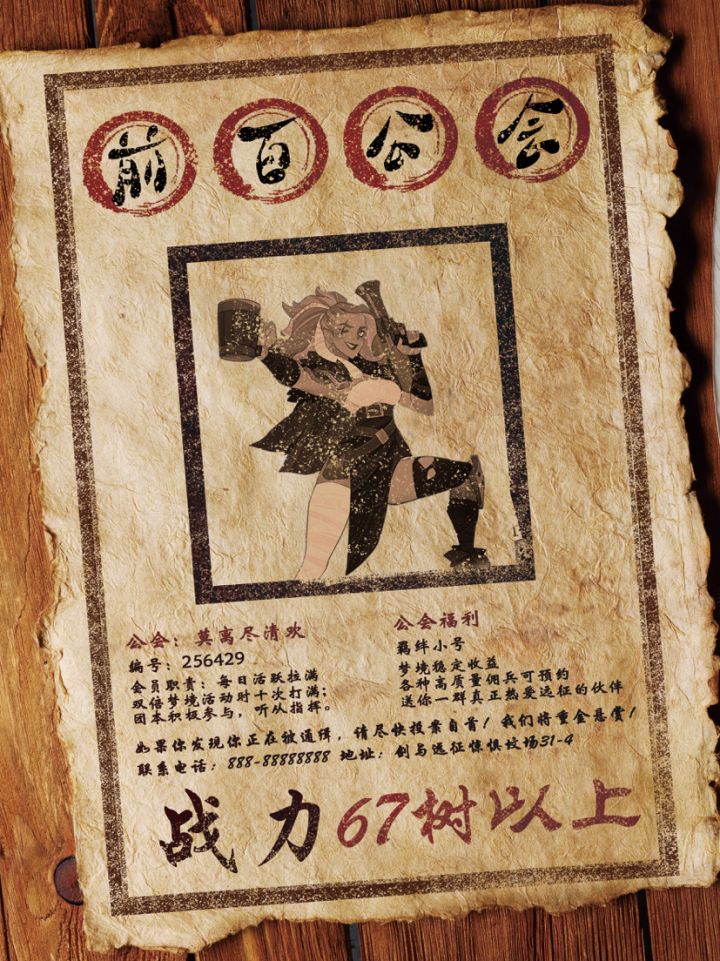 前百公会
公会：莫离尽清欢
编号：256429
会员职责：每日活跃拉满
双倍梦境活动时十次打满；
团本积极参与，听从指挥。
公会福利
羁绊小号
梦境稳定收益
各种高质量佣兵可预约
送你一群真正热爱远征的伙伴
如果你发现你正在被通缉，请尽快投案自首！我们将重金悬赏！
联系电话：888-88888888 地址：剑与远征惊惧坟场31-4
战力67树以上